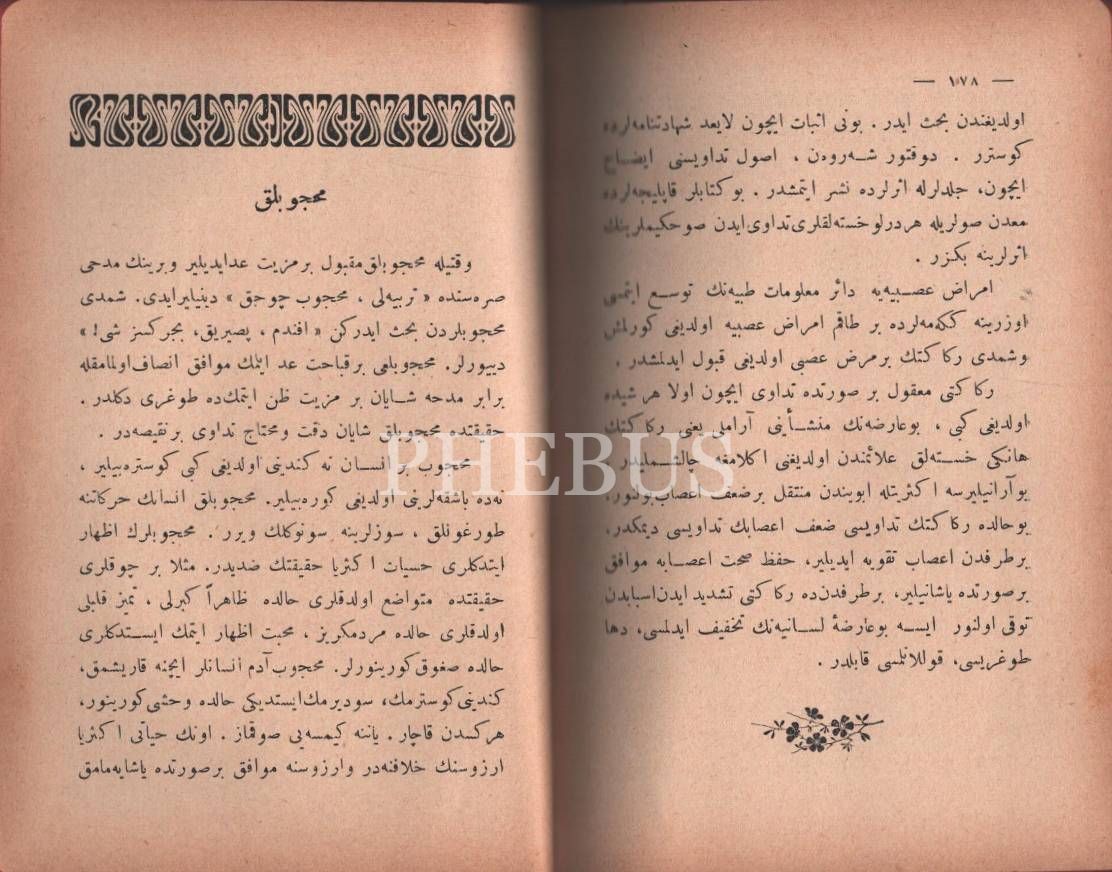 — ١٧٨ —
اولديغندن بحث ايدر . بونى اثبات ايچون لايعد شهادتنامه‌لرده
كوسترر . دوقتور شه‌روه‌ن ، اصول تداويسنى ايضاح
ايچون، جلدلرله اثرلرده نشر ايتمشدر . بوكتابلر قاپليجه‌لرده
معدن صولريله هردرلوخسته‌لقلرى‌تداوى‌ايدن صوحكيملرينك
اثرلرينه بكزر .
امراض عصبيه‌يه دائر معلومات طبيه‌نك توسع ايتمسى
اوزرينه ككه‌مه‌لرده بر طاقم امراض عصبيه اولديغى كورلمش
وشمدى ركاكتك برمرض عصبى اولديغى قبول ايدلمشدر .
ركاكتى معقول بر صورتده تداوى ايچون اولا هرشيده
اولديغى كبى ، بوعارضه‌نك منشأينى آراملى يعنى ركاكتك
هانكى خسته‌لق علائمندن اولديغنى اكلامغه چالشمليدر .
بوآرانيليرسه اكثريتله ابويندن منتقل برضعف اعصاب‌بولنور،
بوحالده ركاكتك تداويسى ضعف اعصابك تداويسى ديمكدر.
برطرفدن اعصاب تقويه ايديلير، حفظ صحت اعصابه موافق
برصورتده ياشانيلير، برطرفدن‌ده ركاكتى تشديد ايدن‌اسبابدن
توقى اولنور ايسه بوعارضهٔ لسانيه‌نك تخفيف ايدلمسى، دها
طوغريسى، قوللانلمسى قابلدر .
محجوبلق
وقتيله محجوبلق‌مقبول برمزيت عدايديلير وبرينك مدحى
صره‌سنده « تربيه‌لى ، محجوب چوجق » دينيليرايدى. شمدى
محجوبلردن بحث ايدركن « افندم ، پصيريق، بجركسز شى! »
ديييورلر. محجوبلغى برقباحت عد ايتمك موافق انصاف‌اولمامقله
برابر مدحه شايان بر مزيت ظن ايتمك‌ده طوغرى دكلدر .
حقيقتده محجوبلق شايان دقت ومحتاج تداوى برنقيصه‌در .
محجوب بر انسان نه كندينى اولديغى كبى كوستره‌بيلير ،
نه‌ده باشقه‌لرينى اولديغى كوره‌بيلير. محجوبلق انسانك حركاتنه
طورغونلق ، سوزلرينه سونوكلك ويرر . محجوبلرك اظهار
ايتدكلرى حسيات اكثريا حقيقتك ضديدر. مثلا بر چوقلرى
حقيقتده متواضع اولدقلرى حالده ظاهراً كبرلى ، تميز قلبلى
اولدقلرى حالده مردمكريز ، محبت اظهار ايتمك ايستدكلرى
حالده صغوق‌كورينورلر. محجوب‌آدم انسانلر ايچنه قاريشمق،
كندينى‌كوسترمك، سوديرمك‌ايستديكى حالده وحشى‌كورينور،
هركسدن قاچار. ياننه كيمسه‌يى صوقماز . اونك حياتى اكثريا
ارزوسنك خلافنه‌در وارزوسنه موافق برصورتده ياشايه‌مامق
PHEBUS